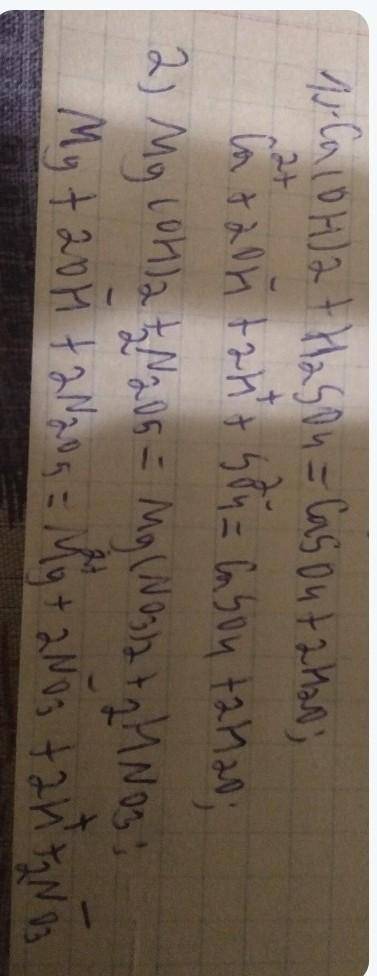 1). Ca(OH)2 + H2SO4 = CaSO4 + 2H2O;
Ca²⁺ + 2OH⁻ + 2H⁺ + SO4²⁻ = CaSO4 + 2H2O;
2) Mg(OH)2 + 2N2O5 = Mg(NO3)2 + 2HNO3;
Mg + 2OH⁻ + 2N2O5 = Mg²⁺ + 2NO3⁻ + 2H⁺ + 2NO3⁻